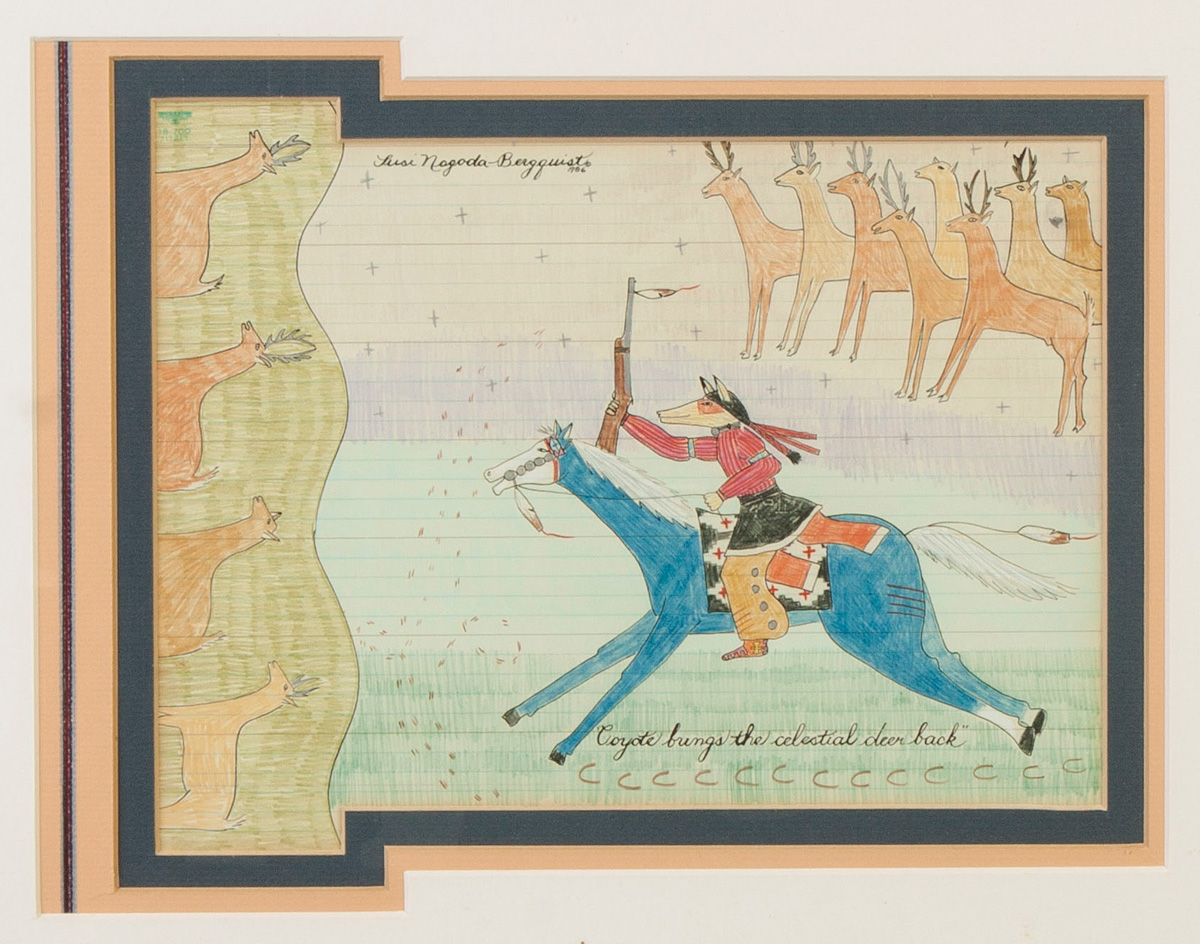 Susi Nagoda-Bergquist
1986
"Coyote bungs the celestial deer back"